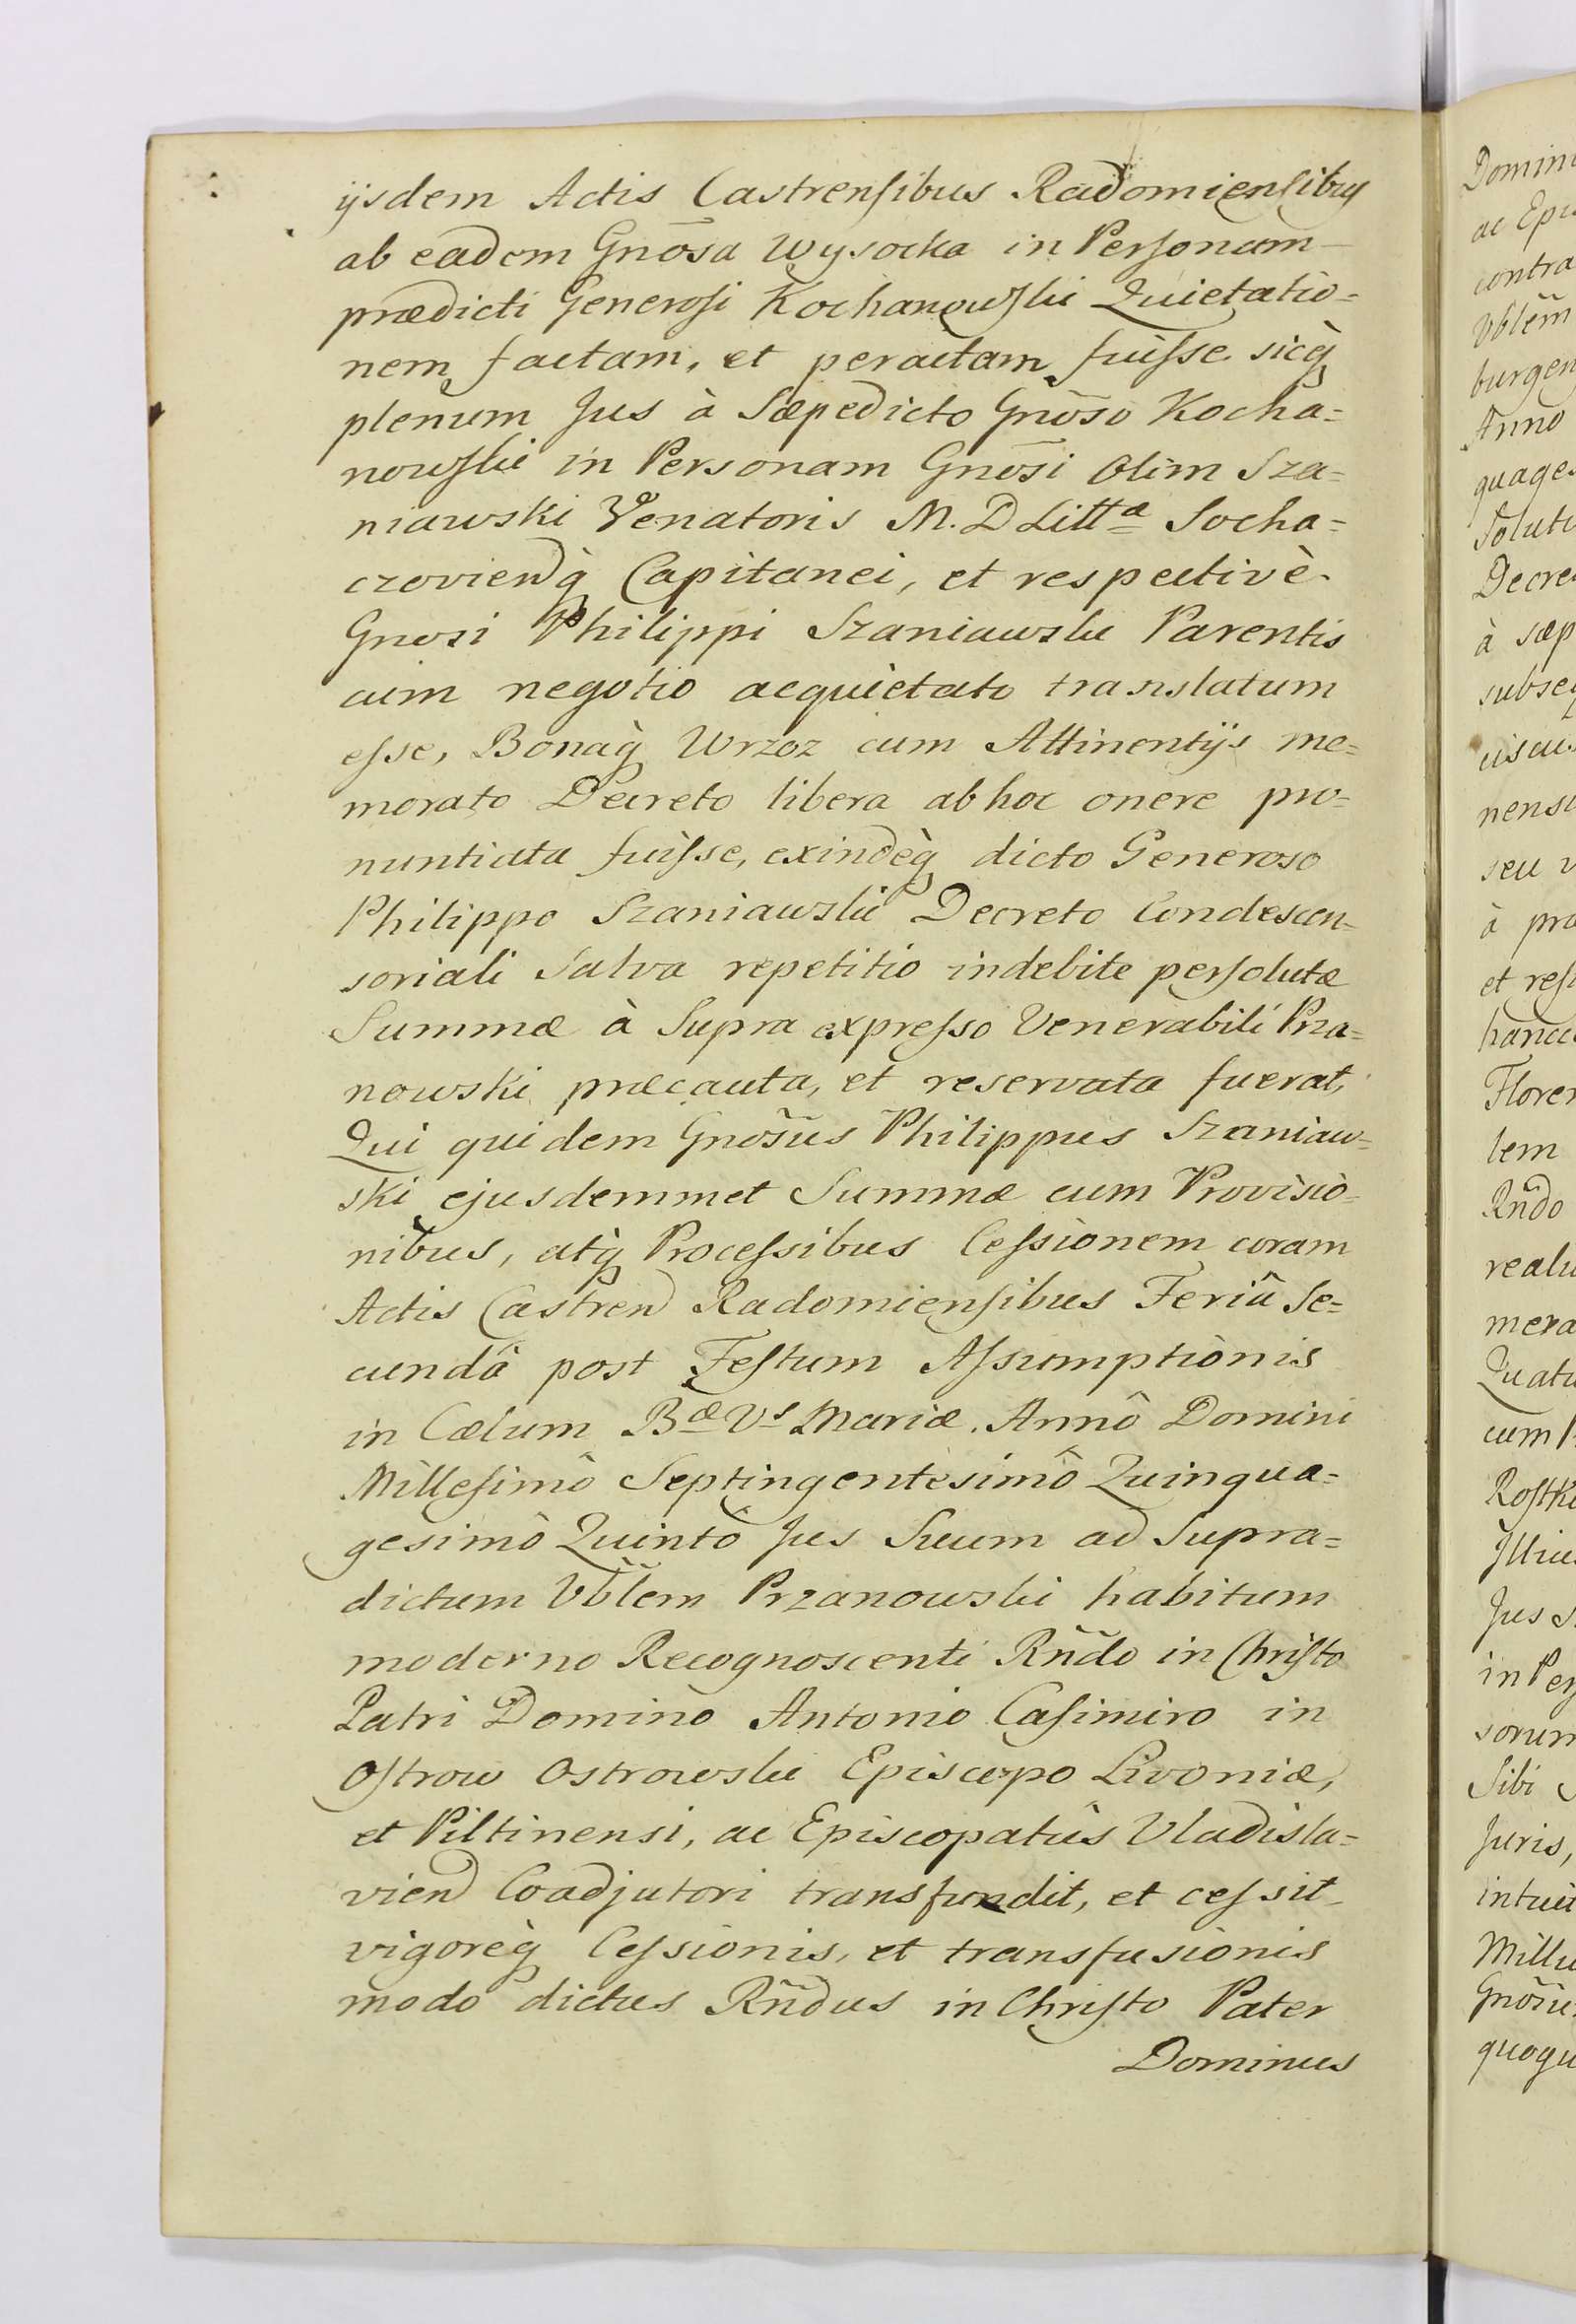 ijsdem Actis Castrensibus Radomiensibus
ab eadem Gnõsa Wysocka in Personam
prædicti Generosi Kochanowski Quietatio=
nem factam, et peractam fuisse sicq̀
plenum Jus à Sæpedicto Gnõso Kocha=
nowski in Personam Gnõsi Olim Sza=
niawski Venatoris M. D Littª Socha=
czovien̄q̀ Capitanei, et respectivè
Gnosi Philippi Szaniawski Parentis
cum negotio acquietato translatum
esse, Bonaq̀ Wrzoz cum Attinentijs me=
morato Decreto libera ab hoc onere pro=
nuntiata fuisse, exindèq̀ dicto Generoso
Philippo Szaniawski Decreto Condescen=
soriali Salva repetitio indebite persolutæ
Summæ à Supra expresso Venerabili Prza=
nowski præcauta, et reservata fuerat,
Qui quidem Gnõsus Philippus Szaniaw=
ski ejusdemmet Summæ cum Provisio=
nibus, atq̀ Processibus Cessionem coram
Actis Castren̄ Radomiensibus Feriâ Se=
cundâ post Festum Assumptionis
in Cælum Bæ Vs Mariæ. Annô Domini
Millesimô Septingentesimô Quinqua=
gesimô Quintô Jus Suum ad Supra=
dictum Vblẽm Przanowski habitum
moderno Recognoscenti Rñdo in Christo
Patri Domino Antonio Casimiro in
Ostrow Ostrowski Episcopo Livoniæ,
et Piltinensi, ac Episcopatûs Vladisla=
vien̄ Coadjutori transfundit, et cessit
vigorèq̀ Cessionis, et transfusionis
modo dictus Rñdus in Christo Pater
Dominus
Domin
ac Epi
contra
Vblẽm
burgen
Anno
quage
Solut
Decre
à sæp
subse
nens
seu
à pr
et res
hanc
Flore
lem
Rñdo
real
mera
Quat
cum
Rostk
Illiu
Jus
in Per
sorum
Sibi
Juris,
intui
Mill
Gnõsu
quoqu